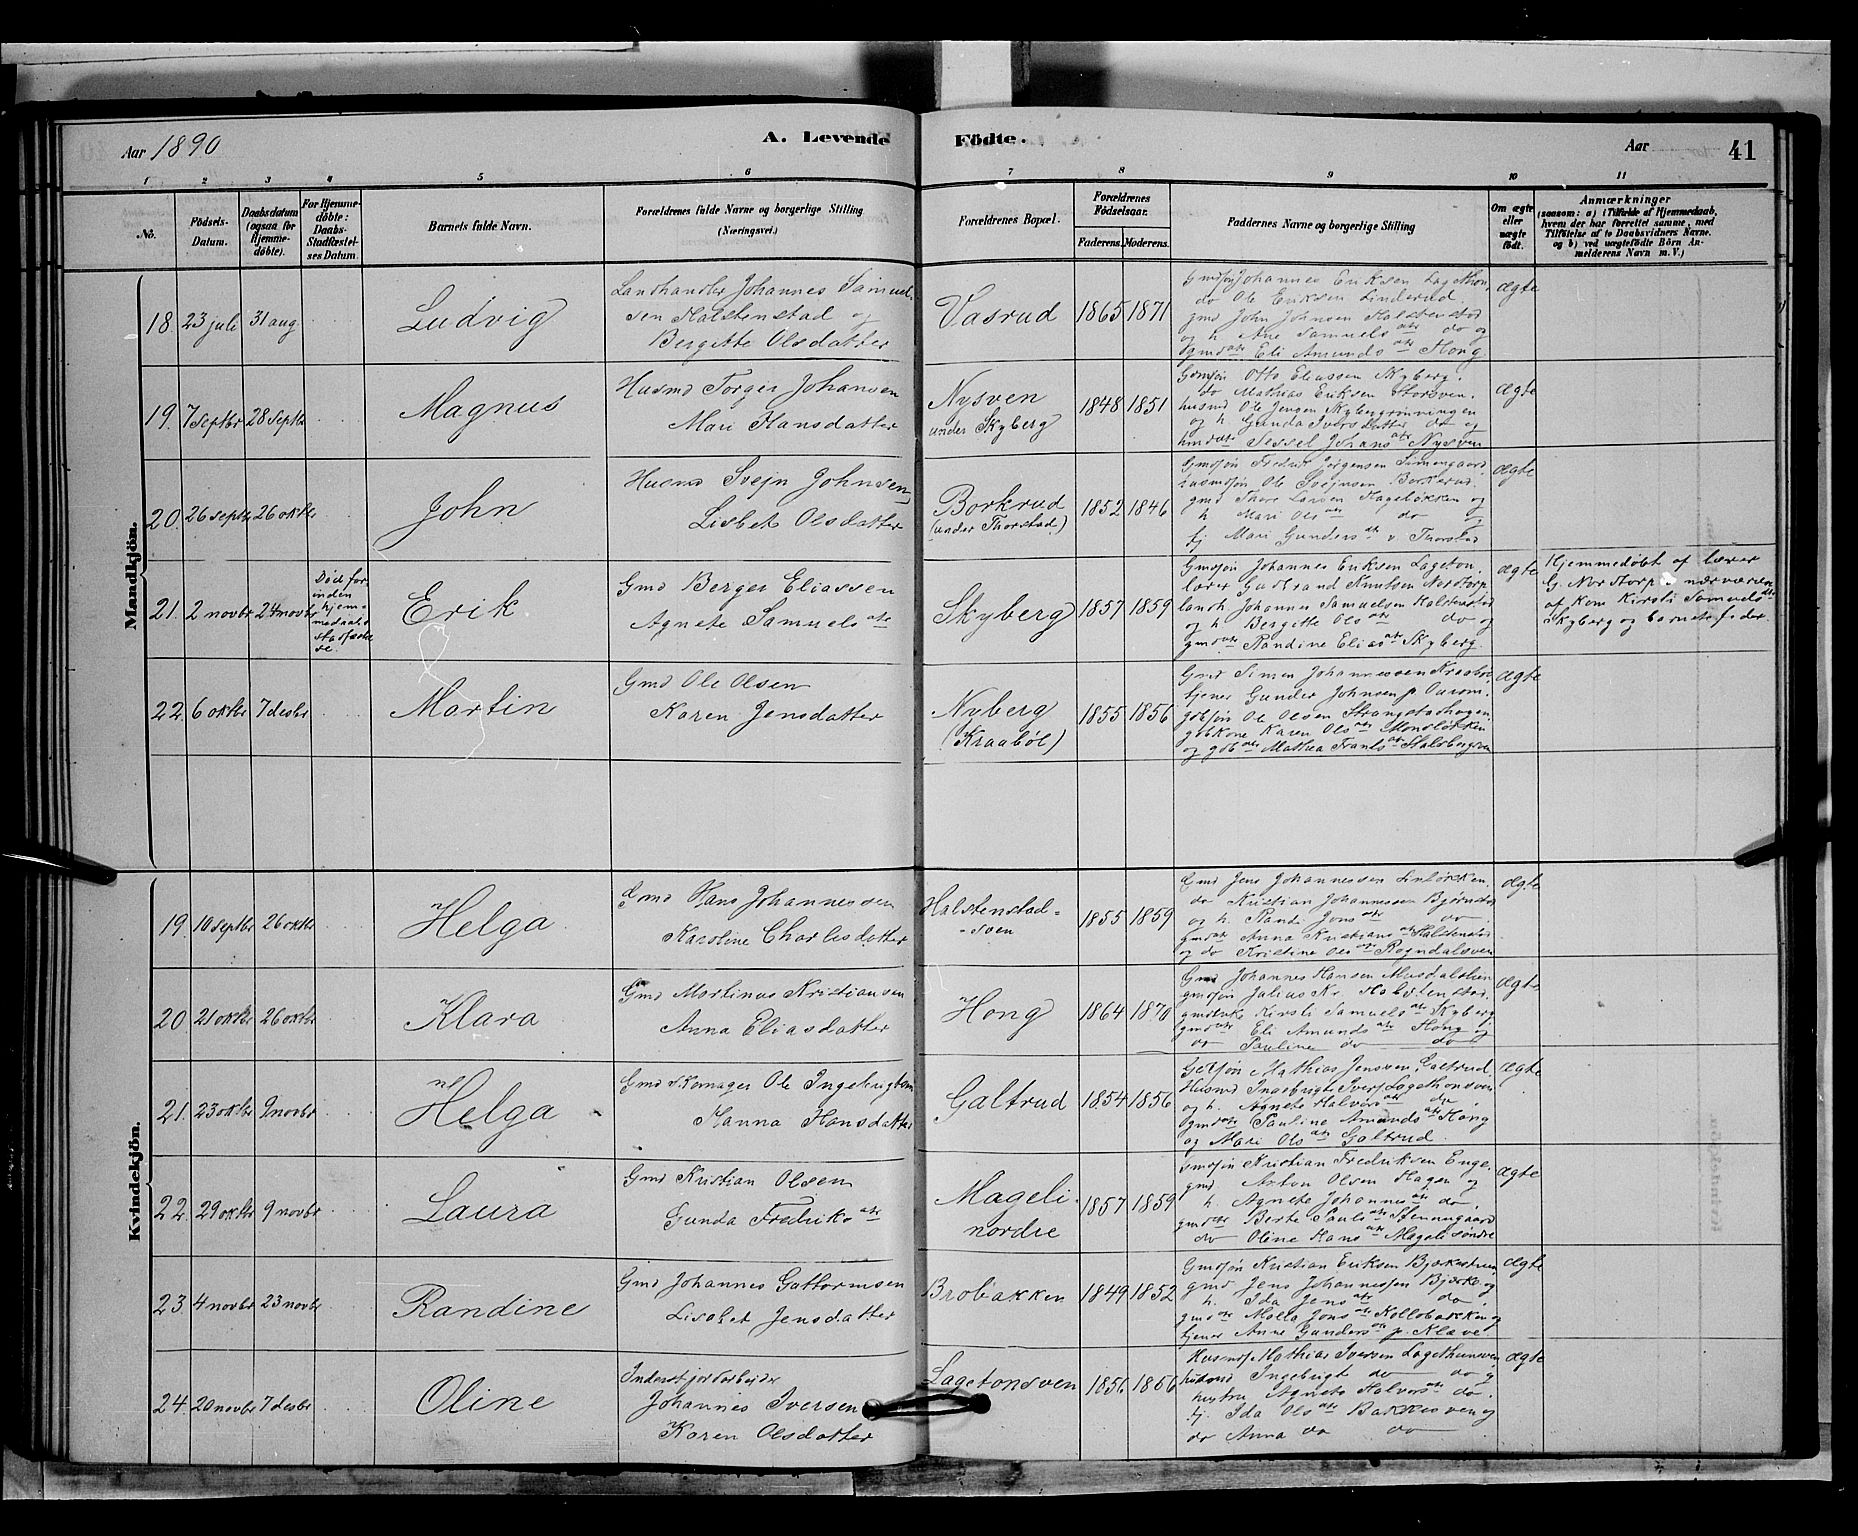 Aar 1890
A. Levende Födte.
Aar
41
1 2 3 4 5 6 7 8 9 10 11
No.
Födsels-
Datum.
Daabsdatum
(ogsaa for
Hjemme-
döbte).
For Hjemme-
döbte:
Daabs-
Stadfæstel-
ses Datum.
Barnets fulde Navn.
Forældrenes fulde Navne og borgerlige Stilling
(Næringsvei.)
Forældrenes Bopæl.
Forældrenes
Födselsaar.
Faderens. Moderens.
Faddernes Navne og borgerlige Stilling
Om ægte
eller
uægte
födt.
Anmærkninger
(saasom: a) i Tilfælde af Hjemmedaab,
hvem der har forrettet samme, med
Tilföielse af to Daabsvidners Navne,
og b) ved uægtefödte Börn An-
melderens Navn m. V.)
Mandkjön.
18. 23 juli 31 aug Ludvig
Landhandler Johannes Samuel-
sen Halstenstad og
Bergitte Olsdatter
Vasrud 1865 1871
Gmdsjøn Johannes Eriksen Lagethon,
do Ole Eriksen Linderud.
gmd John Johnsen Halstenstad
og h. Ane Samuels atr do og
gmdatr Eli Amunds atr Hong
ægte
19. 7 septbr 28 septbr Magnus
Husmd Torger Johansen
Mari Hansdatter
Nysven
under Skyberg
1848 1851
Gmdsjøn Otto Eliassen Skyberg.
do Mathias Eriksen Storsven.
husmd Ole Jørgen Skybergrønningen
og h. Gunda Iversdatter do og
hmdatr Sessel Johans atr Nysven
ægte
20. 26 septbr 26 oktbr John
Husmd Svejn Johnsen
Lisbet Olsdatter
Borkrud
(under Thorstad)
1852 1846
Gmdsjøn Fredrik Jørgensen Simengaard
husmdsjøn Ole Svejnsen Borkerud.
gmd Thore Larsen Hageløkken og
h. Mari Ols atr do og
tj. Mari Gunders atr v. Thorstad
ægte
21. 2 novbr 24 novbr
Død for
inden
hjem-
medaabs
stadfæstel
se.
Erik
Gmd Berger Eliassen
Agnete Samuels atr
Skyberg 1857 1859
Gmdsjøn Johannes Eriksen Lageton.
lærer Gudbrand Knutsen Nordtorp
landh. Johannes Samuelsen Halstenstad
og h. Bergitte Ols atr do og
gmdatr Randine Elias atr Skyberg.
ægte
Hjemmedøbt af lærer
G. Nordtorp i nærværelse
af Kone Kirsti Samuels atr
Skyberg og barnets fader.
22. 6 oktbr 7 desbr Martin
Gmd Ole Olsen
Karen Jensdatter
Nyberg
(Kraaböl)
1855 1856
Gmd Simen Johannessen Kraabøl
tjener Gunder Johnsen p.
gdbsjøn Ole Olsen Strangstadhagen.
gdbkone Karen Ols atr Monsløkken
og gdb atr Mathea Frants atr
ægte
Kvindekjön.
19. 10 septbr 26 oktbr Helga
Gmd Hans Johannessen
Karoline Charlesdatter
Halstenstad-
-sven
1855 1859
Gmd Jens Johannessen Linløkken,
do Kristian Johannessen Bjørnstad
og h. Randi Jons atr do.
Gmdatr Anna Kristians atr Halstenstad
og do Kristine Ols atr Rogndalsven
ægte
20. 21 oktbr 26 oktbr Klara
Gmd Martinus Kristiansen
Anna Eliasdatter
Hong 1864 1870
Gmd Johannes Hansen Musdalslien
gmdsjøn Julius Kr. Halstenstad.
Kirsti Samuels atr Skyberg
gmdatr Eli Amunds atr Hong og
do Pauline do do
ægte
21. 23 oktbr 9 novbr Helga
Gmd skomager Ole Ingebrigtsen
Hanna Hansdatter
Galtrud 1854 1856
Gdbsjøn Mathias Jensen Galtrud
Husmd Ingebrigt Ivers. Lagethonsven
og h. Agnete Halvors atr do.
gmdatr Pauline Amunds atr Hong
og Mari Ols atr Galtrud.
ægte
22. 29 oktbr 9 novbr Laura
Gmd Kristian Olsen
Gunda Fredriks atr
Mageli
nordre
1857 1859
Gmdsjøn Kristian Fredriksen Enge.
gmd Anton Olsen Hagen og
h. Agnete Johannes atr do.
gmdatr Berte Pauls atr Stenumgaard
do Oline Hans atr Mageli søndre
ægte
23. 4 novbr 23 novbr Randine
Gmd Johannes Guttormsen
Lisabet Jensdatter
Bröbakken 1849 1852
Gmdsjøn Kristian Eriksen Bjærkestuen
gmd Jens Johannessen Bjærke og
h. Ida Jens atr do.
gmdatr Malla Jons atr Kollobakken og
tjener Anne Gunders atr p. Klæve
ægte
24. 20 novbr 7 desbr Oline
Inderst jordarbejder
Johannes Iversen
Karen Olsdatter
Lagetonsven 1856 1866
Husmdsj. Mathias Iversen Lagethonsven
husmd Ingebrigt do do og
hustru Agnete Halvors atr do.
tj. Ida Ols atr Bakkesven og
do Anna do do
ægte